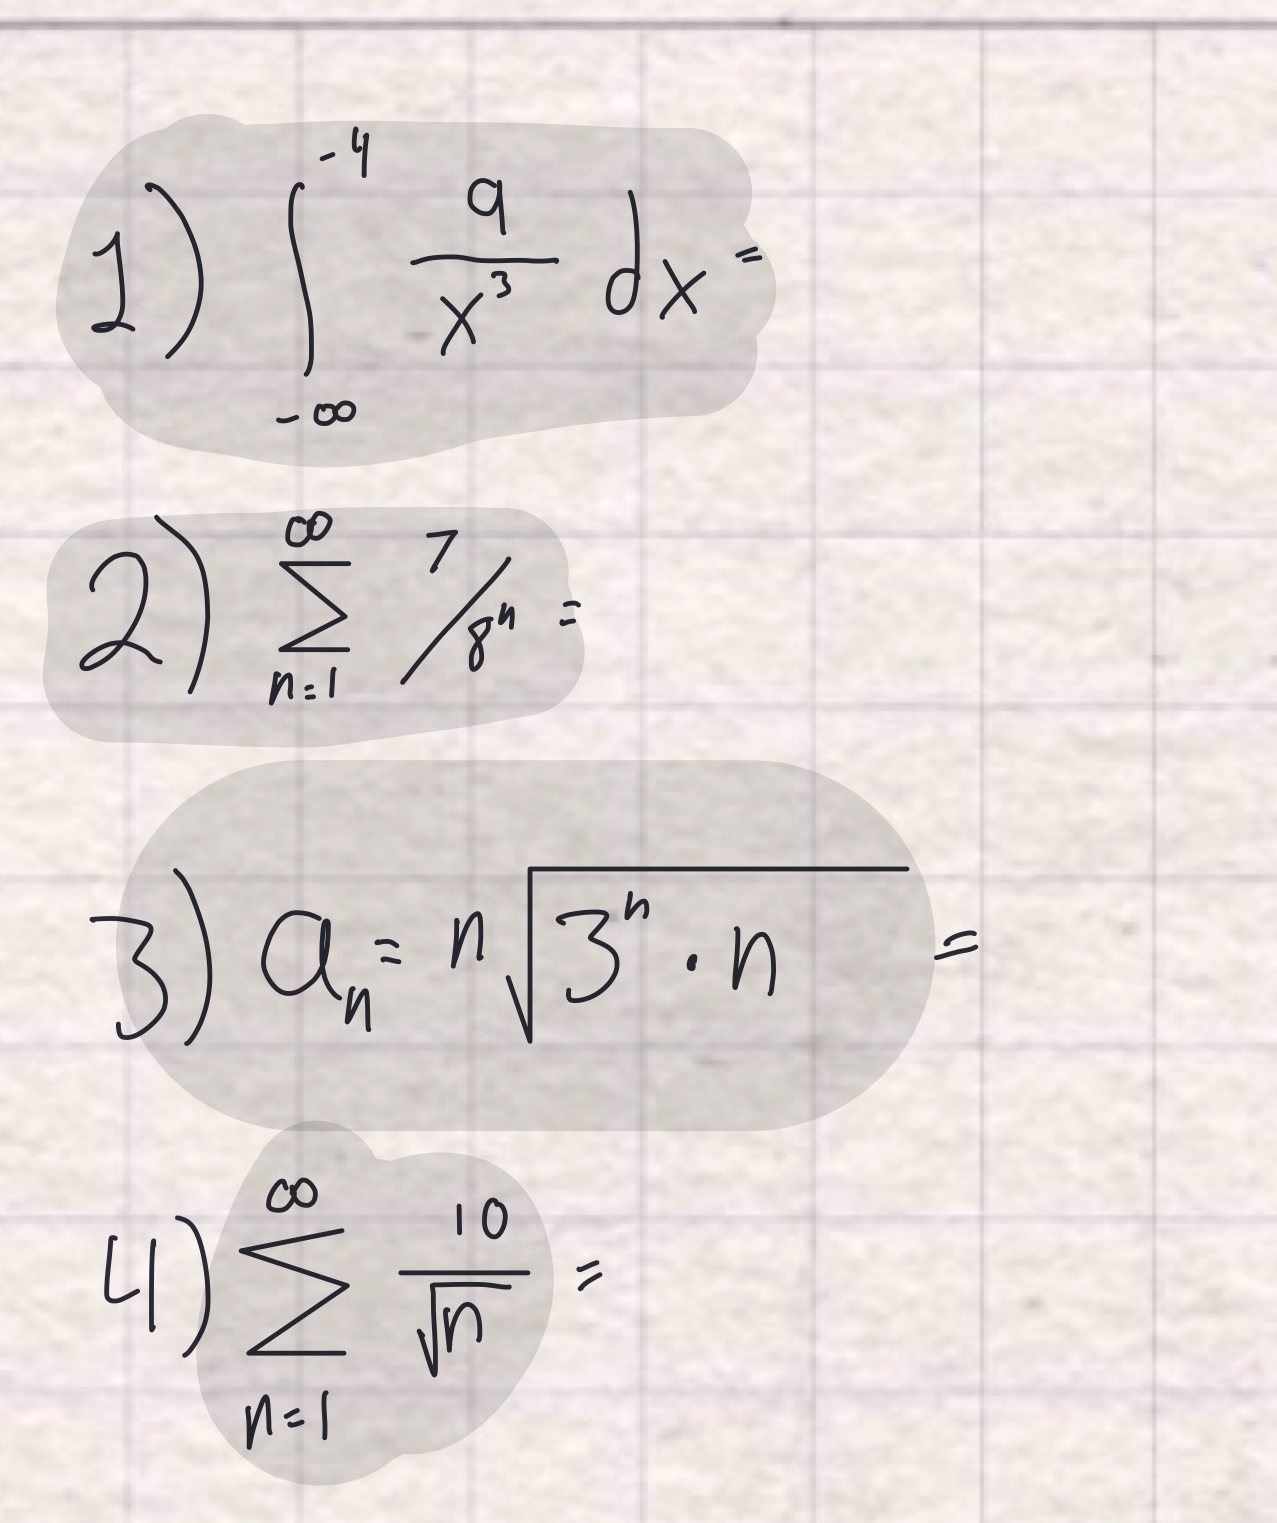 1) ∫_{-∞}^{-4} 9/x³ dx =
2) ∑_{n=1}^{∞} 7/8ⁿ =
3) aₙ = n√(3ⁿ · n) =
4) ∑_{n=1}^{∞} 10/√n =